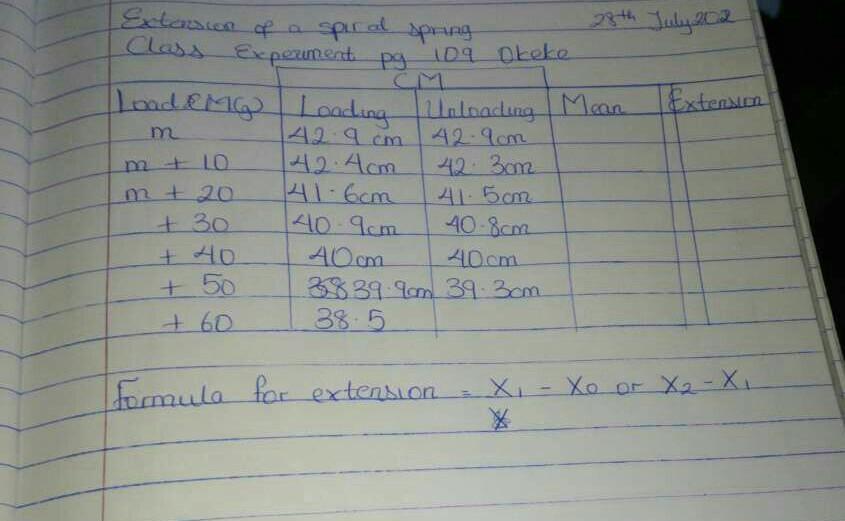 Extension of a spiral spring 28th July 202
Class Experiment pg 109 Okeke
CM
Load & M(g) Loading Unloading Mean Extension
m 42.9 cm 42.9cm
m + 10 42.4cm 42.3cm
m + 20 41.6cm 41.5cm
+ 30 40.9cm 40.8cm
+ 40 40cm 40cm
+ 50 38 39.9cm 39.3cm
+ 60 38.5
Formula for extension = X₁ - X₀ or X₂ - X₁